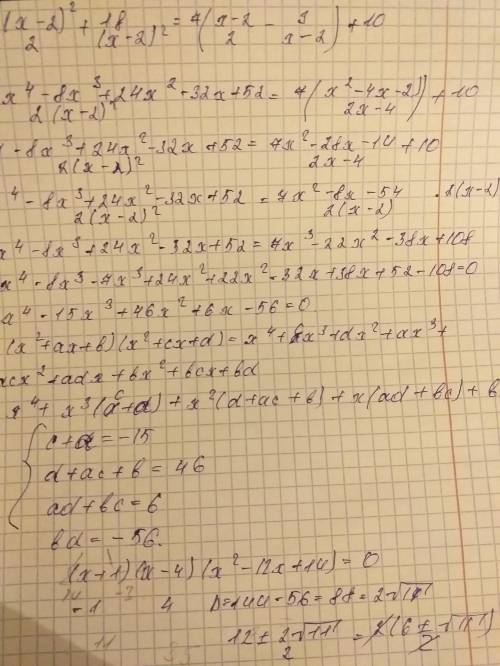 (x-2)²/2 + 18/(x-2)² = 7((x-2)/2 - 3/(x-2)) + 10
x⁴ - 8x³ + 24x² - 32x + 52 / 2(x-2) = 7(x² - 4x - 2 / 2x-4) + 10
- 8x³ + 24x² - 32x + 52 / 2(x-2)² = 7x² - 28x - 14 / 2x-4 + 10
⁴ - 8x³ + 24x² - 32x + 52 / 2(x-2)² = 7x² - 8x - 54 / 2(x-2) · 2(x-2)
x⁴ - 8x³ + 24x² - 32x + 52 = 7x³ - 22x² - 38x + 108
x⁴ - 8x³ - 7x³ + 24x² + 22x² - 32x + 38x + 52 - 108 = 0
x⁴ - 15x³ + 46x² + 6x - 56 = 0
(x² + ax + b)(x² + cx + d) = x⁴ + cx³ + dx² + ax³ +
acx² + adx + bx² + bcx + bd
x⁴ + x³(c + a) + x²(d + ac + b) + x(ad + bc) + b
c + a = -15
d + ac + b = 46
ad + bc = 6
bd = -56.
(x+1)(x-4)(x² - 12x + 14) = 0
-1 4 D = 144 - 56 = 88 = 2√11
12 ± 2√11 / 2 = 2(6 ± √11) / 2